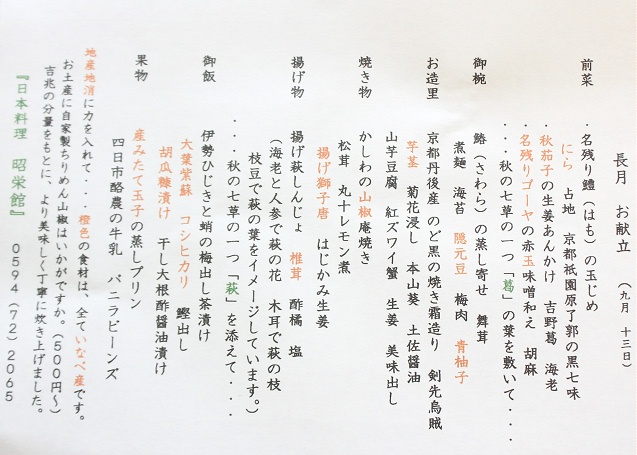 長月　お献立　（九月　十三日）
前菜　・名残り鱧（はも）の玉じめ
にら　占地　京都祇園原了郭の黒七味
・秋茄子の生姜あんかけ　吉野葛　海老
・名残りゴーヤの赤玉味噌和え　胡麻
・・・秋の七草の一つ「葛」の葉を敷いて・・・・
御椀　鰆（さわら）の蒸し寄せ　舞茸
煮麺　海苔　隠元豆　梅肉　青柚子
お造里　京都丹後産　のど黒の焼き霜造り　剣先烏賊
芋茎　菊花浸し　本山葵　土佐醤油
山芋豆腐　紅ズワイ蟹　生姜　美味出し
焼き物　かしわの山椒庵焼き
松茸　丸十レモン煮
揚げ獅子唐　はじかみ生姜
揚げ物　揚げ萩しんじょ　椎茸　酢橘　塩
（海老と人参で萩の花　木耳で萩の枝
枝豆で萩の葉をイメージしています。）
・・・秋の七草の一つ「萩」を添えて・・・・
御飯　伊勢ひじきと蛸の梅出し茶漬け
大葉紫蘇　コシヒカリ　鰹出し
胡瓜糠漬け　干し大根酢醤油漬け
果物　産みたて玉子の蒸しプリン
四日市酪農の牛乳　バニラビーンズ
地産地消に力を入れて・・・橙色の食材は、全ていなべ産です。
お土産に自家製ちりめん山椒はいかがですか。（５００円～）
吉兆の分量をもとに、より美味しく丁寧に炊き上げました。
『日本料理　昭栄館』　０５９４（７２）２０６５